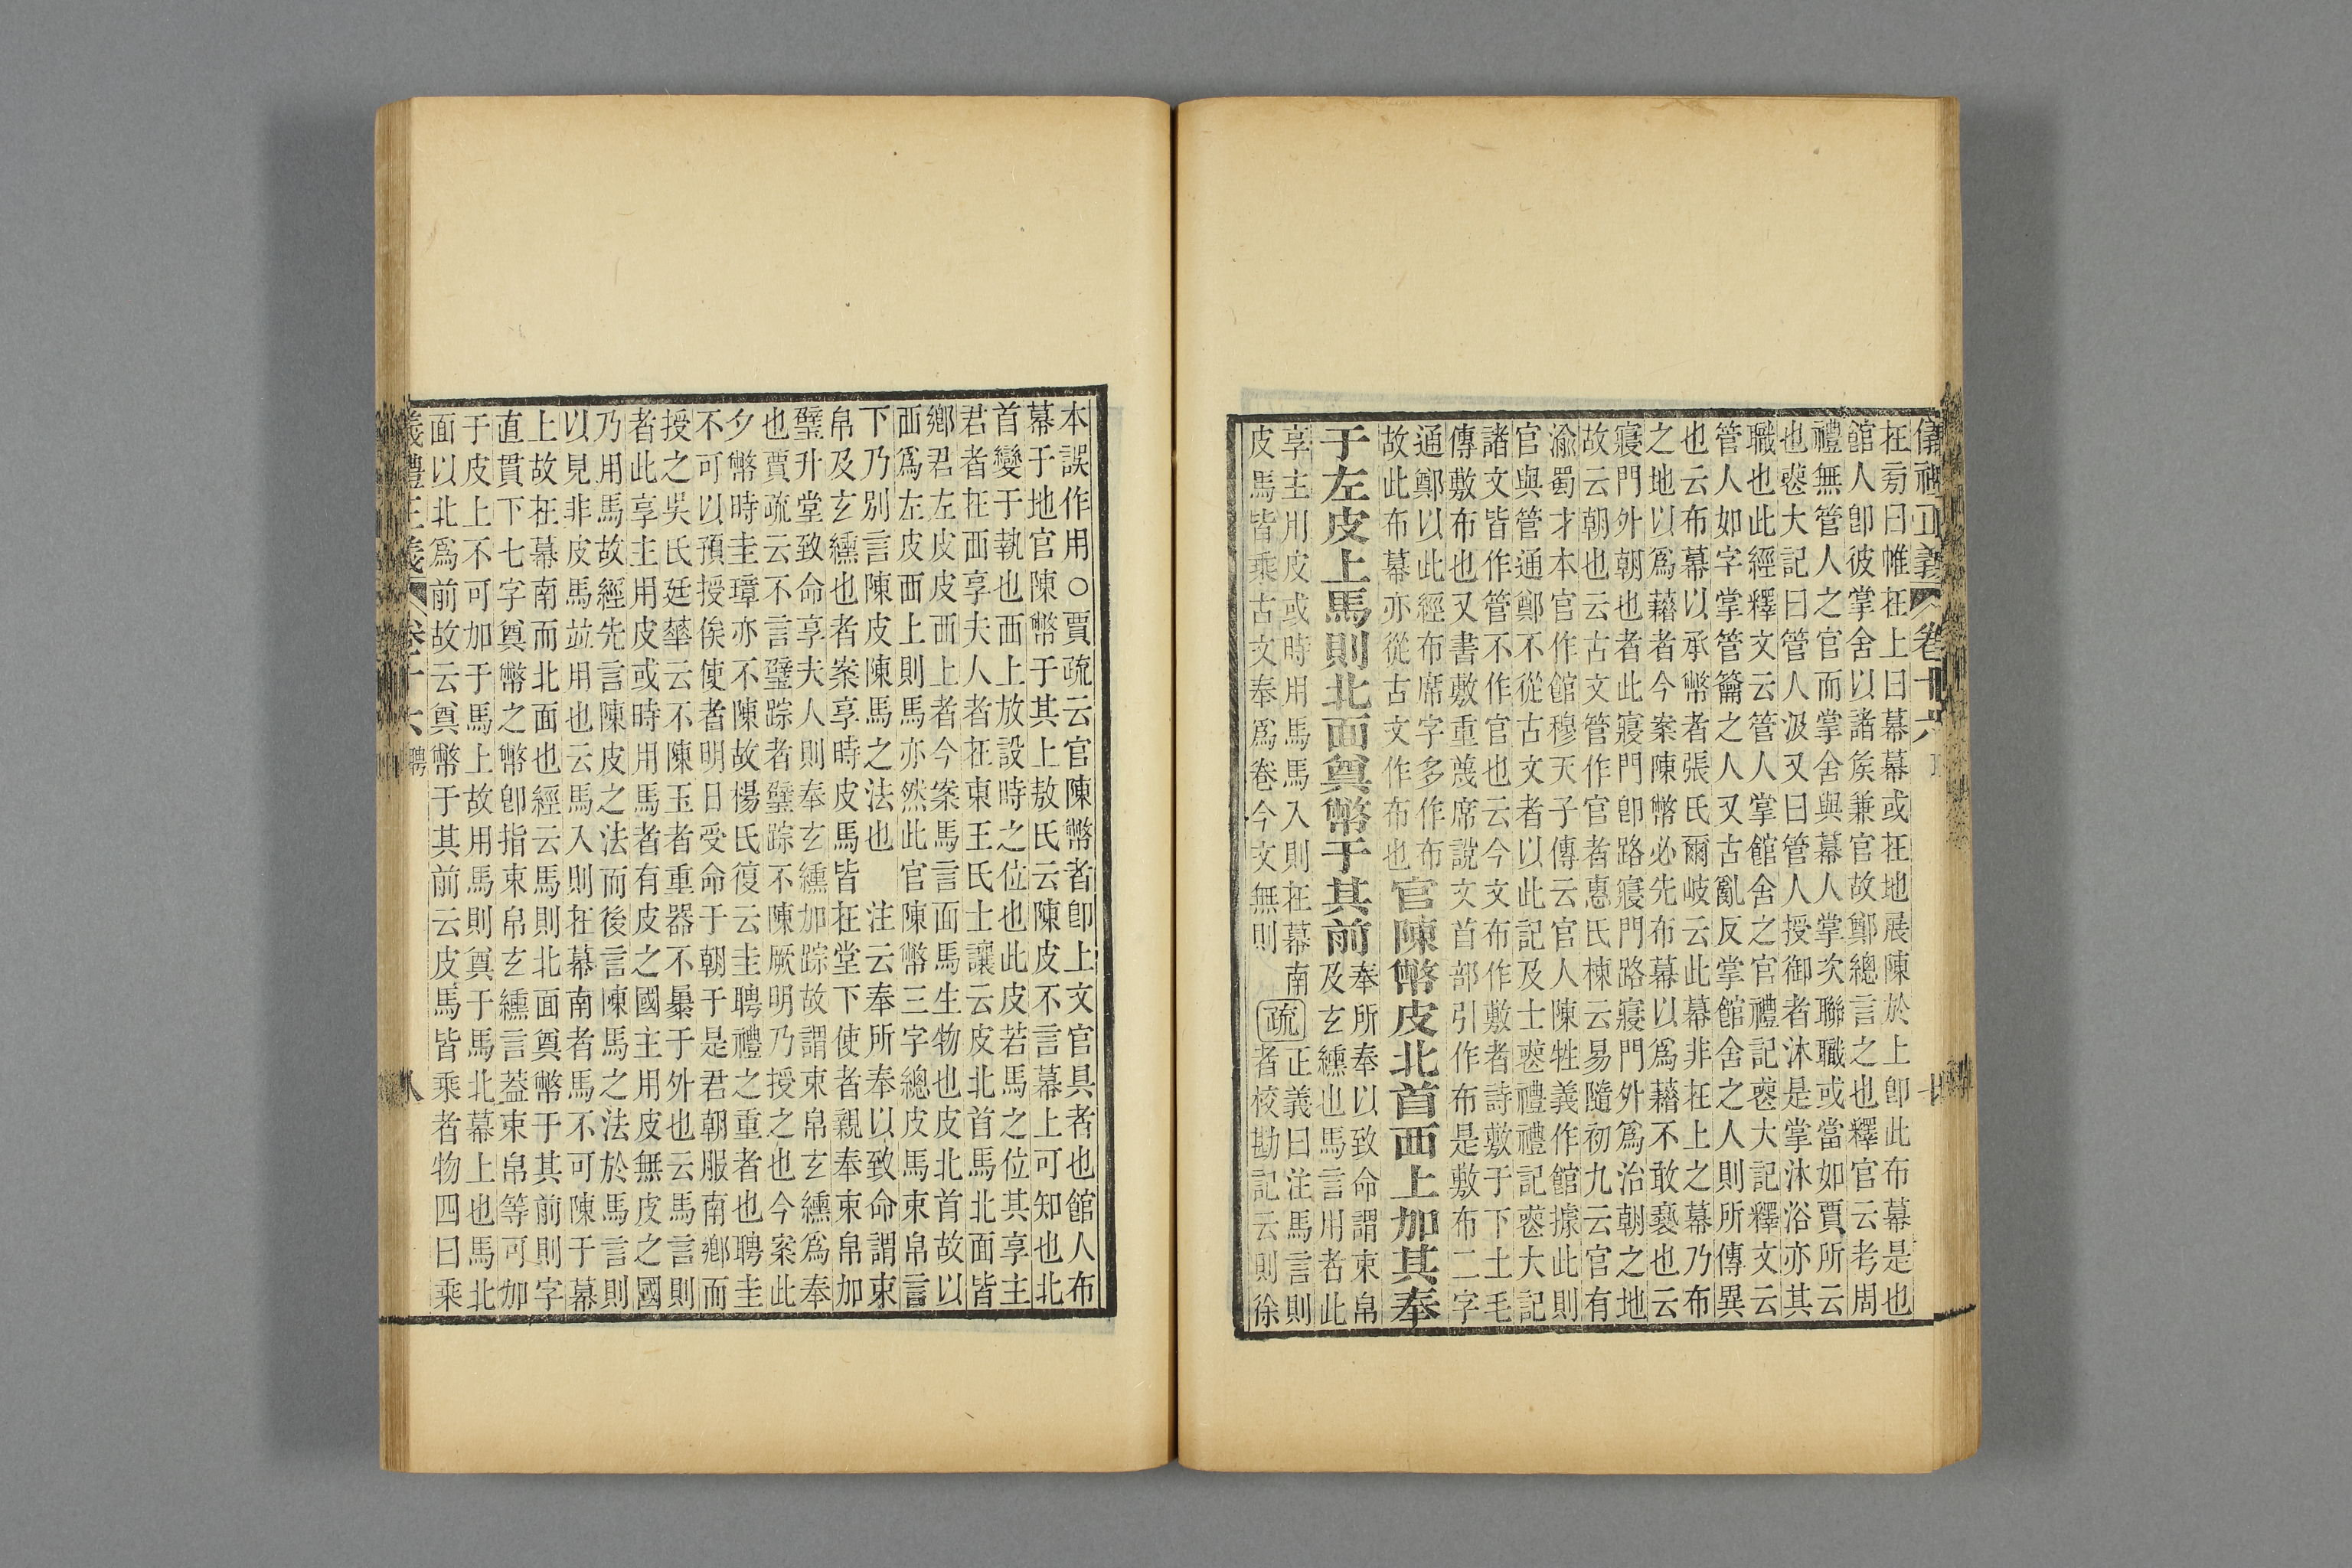 儀禮正義 卷十六
在旁曰帷在上曰幕幕或在地展陳於上卽此布幕是也
館人卽彼掌舍以諸矦兼官故鄭總言之也釋官云考周
禮無管人之官而掌舍與幕人掌次聯職或當如賈所云
也䘮大記曰管人汲又曰管人授御者沐是掌沐浴亦其
職也此經釋文云管人掌館舍之官禮記䘮大記釋文云
管人如字掌管籥之人又古亂反掌館舍之人則所傳異
也云布幕以承幣者張氏爾岐云此幕非在上之幕乃布
之地以爲藉者今案陳幣必先布幕以爲藉不敢褻也云
寢門外朝也者此寢門卽路寢門路寢門外爲治朝之地
故云朝也云古文管作官者惠氏棟云易隨初九云官有
渝蜀才本官作館穆天子傳云官人陳牲義作館據此則
官與管通鄭不從古文者以此記及士䘮禮禮記䘮大記
諸文皆作管不作官也云今文布作敷者詩敷于下土毛
傳敷布也又書敷重蔑席說文首部引作布是敷布二字
通鄭以此經布席字多作布
故此布幕亦從古文作布也
官陳幣皮北首西上加其奉
于左皮上馬則北面奠幣于其前
奉所奉以致命謂束帛
及玄纁也馬言用者此
享主用皮或時用馬馬入則在幕南
皮馬皆乘古文奉爲卷今文無則
疏
正義曰注馬言則
者校勘記云則徐
本誤作用○賈疏云官陳幣者卽上文官具者也館人布
幕于地官陳幣于其上敖氏云陳皮不言幕上可知也北
首變于執也西上放設時之位也此皮若馬之位其享主
君者在西享夫人者在東王氏士讓云皮北首馬北面皆
鄉君左皮皮西上者今案馬言面馬生物也皮北首故以
西爲左皮西上則馬亦然此官陳幣三字總皮馬束帛言
下乃別言陳皮陳馬之法也 注云奉所奉以致命謂束
帛及玄纁也者案享時皮馬皆在堂下使者親奉束帛加
璧升堂致命享夫人則奉玄纁加琮故謂束帛玄纁爲奉
也賈疏云不言璧琮者璧琮不陳厥明乃授之也今案此
夕幣時圭璋亦不陳故楊氏復云圭聘禮之重者也聘圭
不可以預授俟使者明日受命于朝于是君朝服南鄉而
授之吳氏廷華云不陳玉者重器不暴于外也云馬言則
者此享主用皮或時用馬者有皮之國主用皮無皮之國
乃用馬故經先言陳皮之法而後言陳馬之法於馬言則
以見非皮馬並用也云馬入則在幕南者馬不可陳于幕
上故在幕南而北面也經云馬則北面奠幣于其前則字
直貫下七字奠幣之幣卽指束帛玄纁言葢束帛等可加
于皮上不可加于馬上故用馬則奠于馬北幕上也馬北
面以北爲前故云奠幣于其前云皮馬皆乘者物四曰乘
儀禮正義 卷十六 聘 八